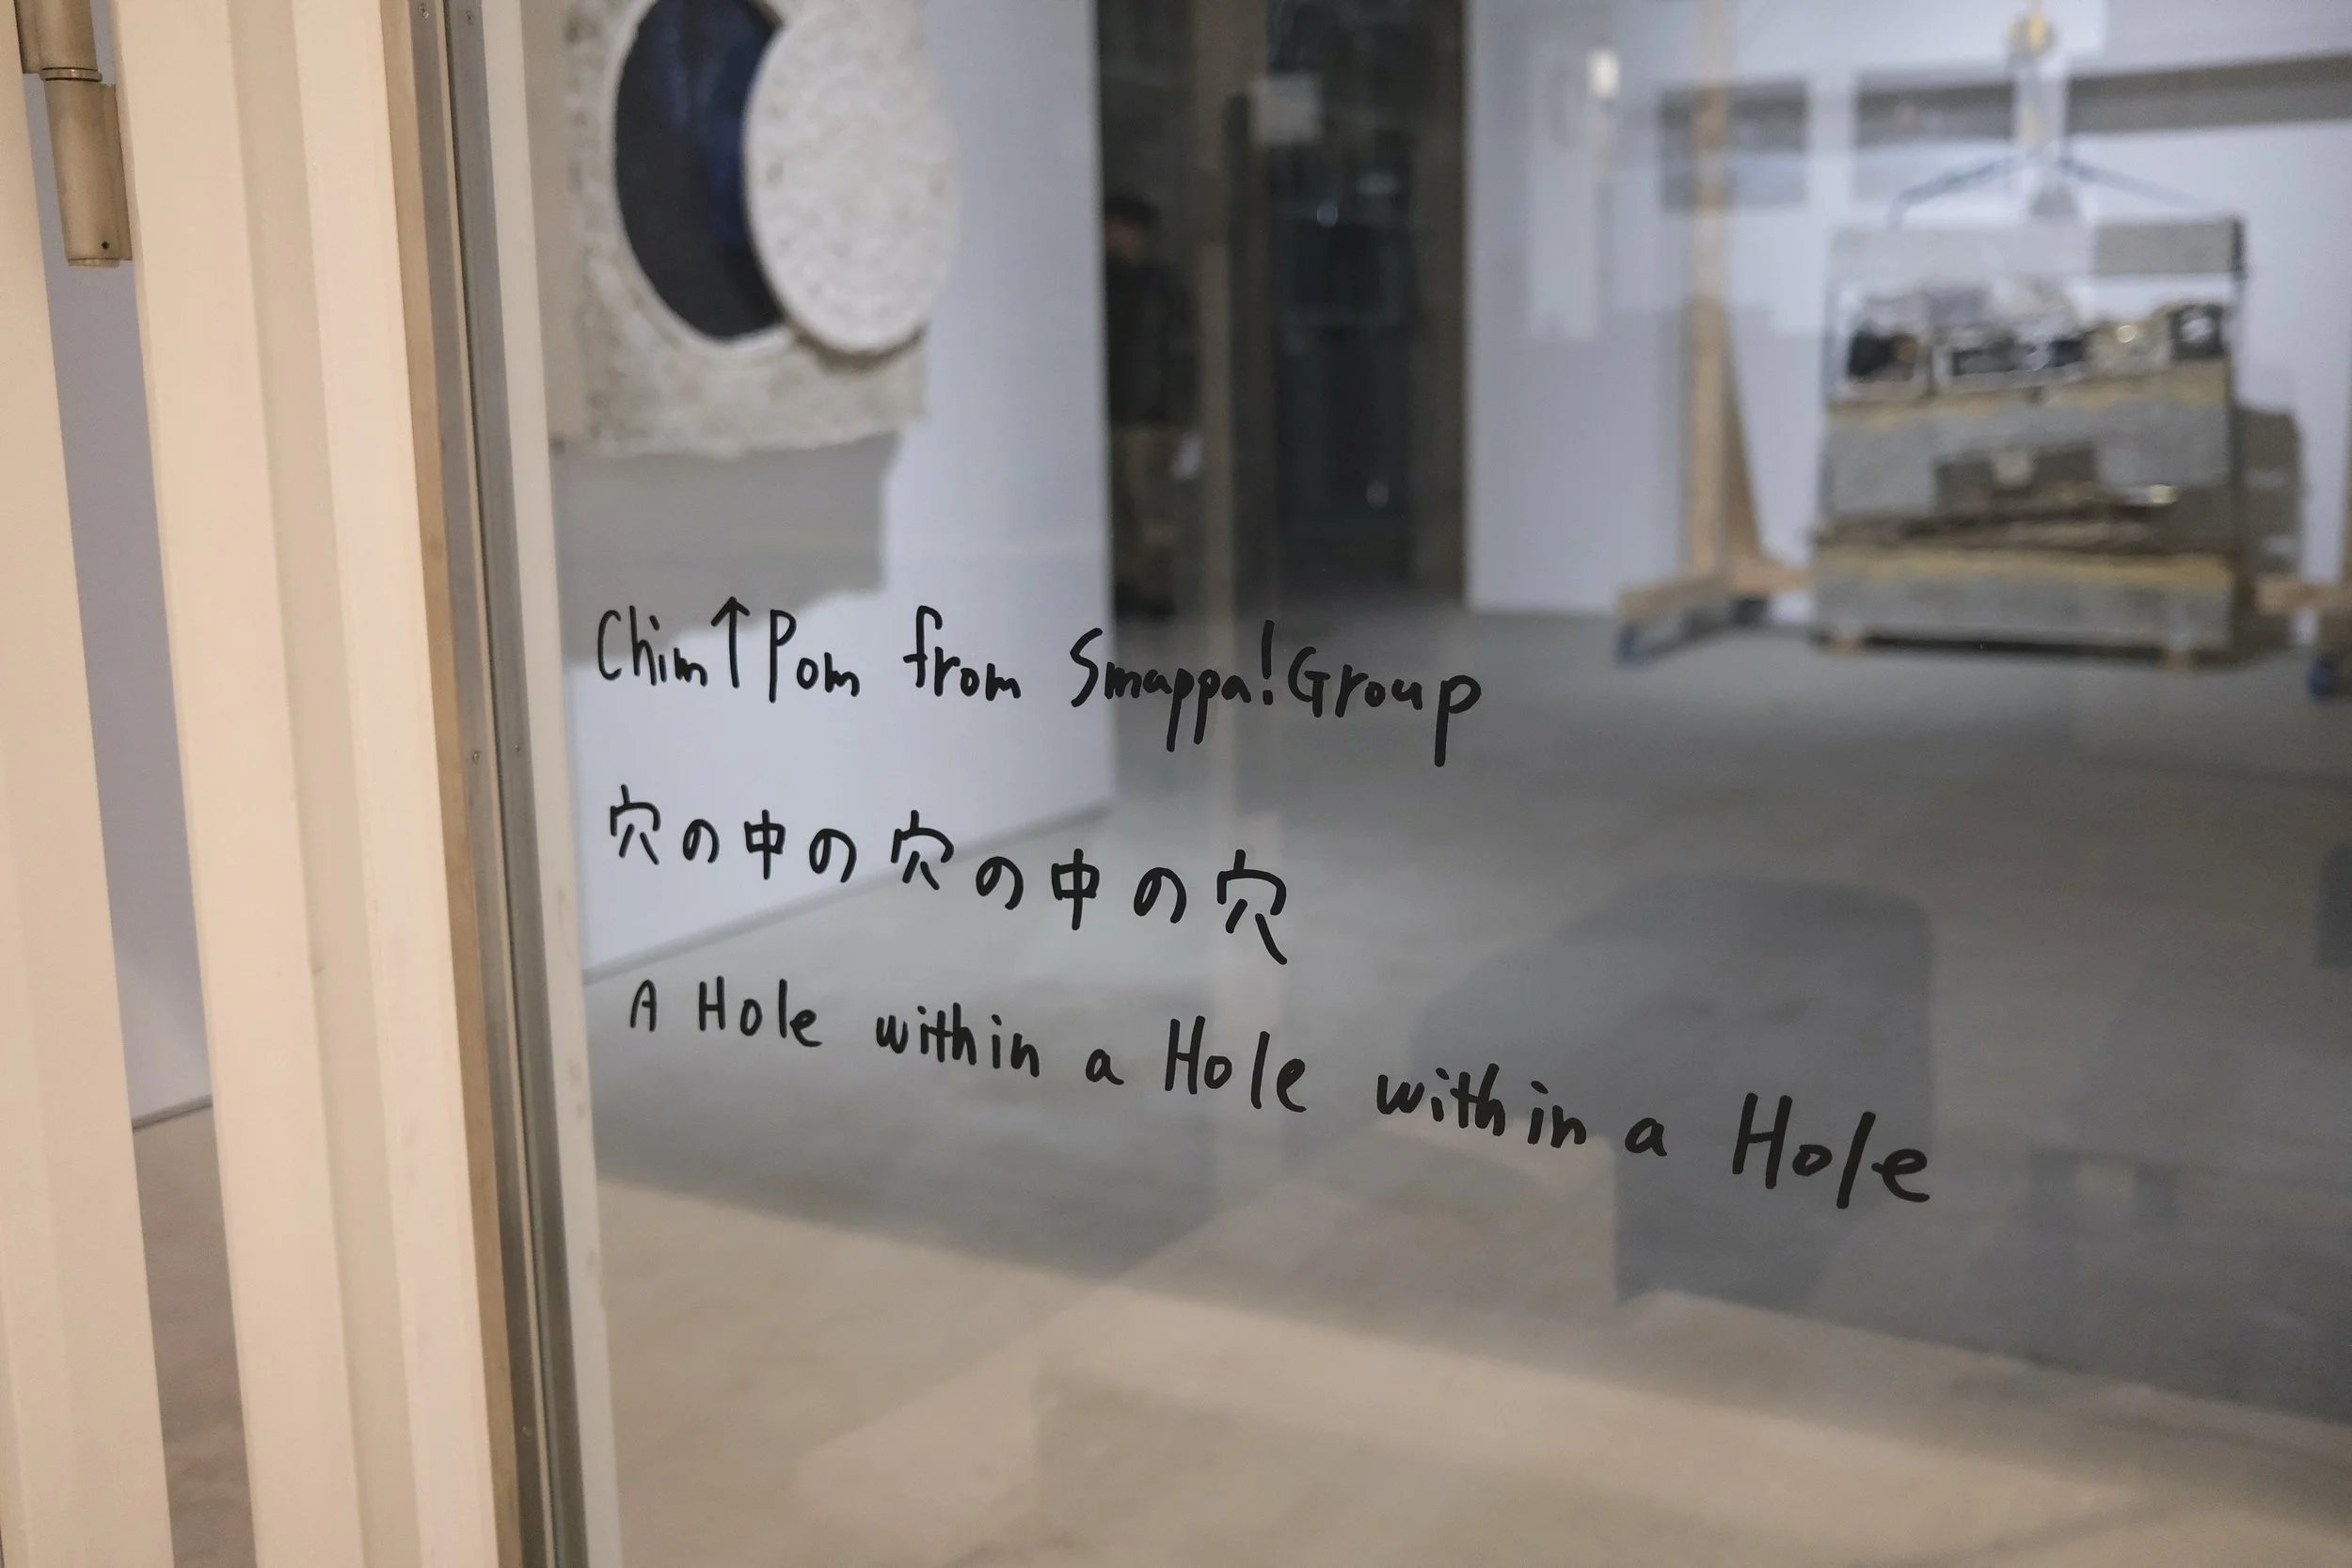 Chim↑Pom from Smappa!Group
穴の中の穴の中の穴
A Hole within a Hole within a Hole